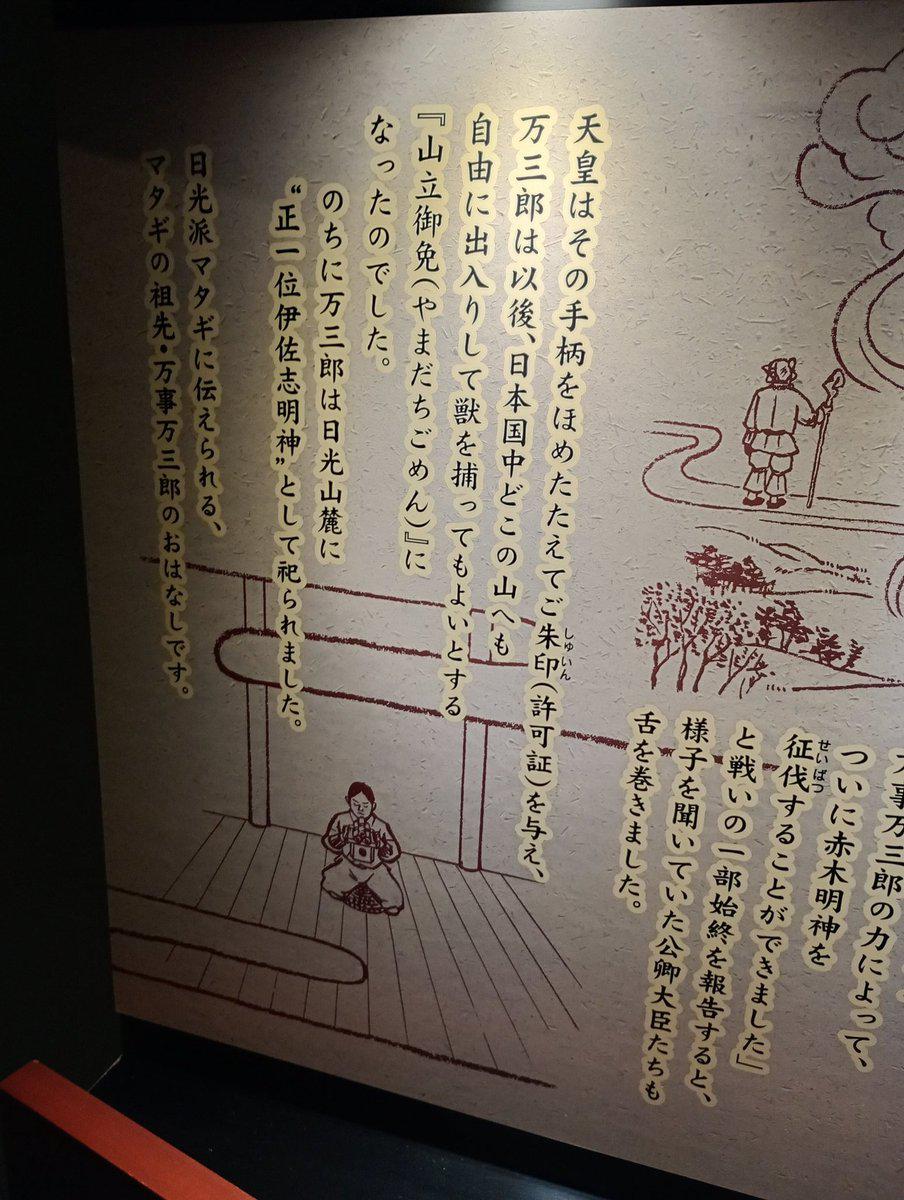 万事万三郎の力によって、
ついに赤木明神を
征伐することができました」
と戦いの一部始終を報告すると、
様子を聞いていた公卿大臣たちも
舌を巻きました。
天皇はその手柄をほめたたえてご朱印(許可証)を与え、
万三郎は以後、日本国中どこの山へも
自由に出入りして獣を捕ってもよいとする
『山立御免(やまだちごめん)』に
なったのでした。
のちに万三郎は日光山麓に
“正一位伊佐志明神”として祀られました。
日光派マタギに伝えられる、
マタギの祖先・万事万三郎のおはなしです。